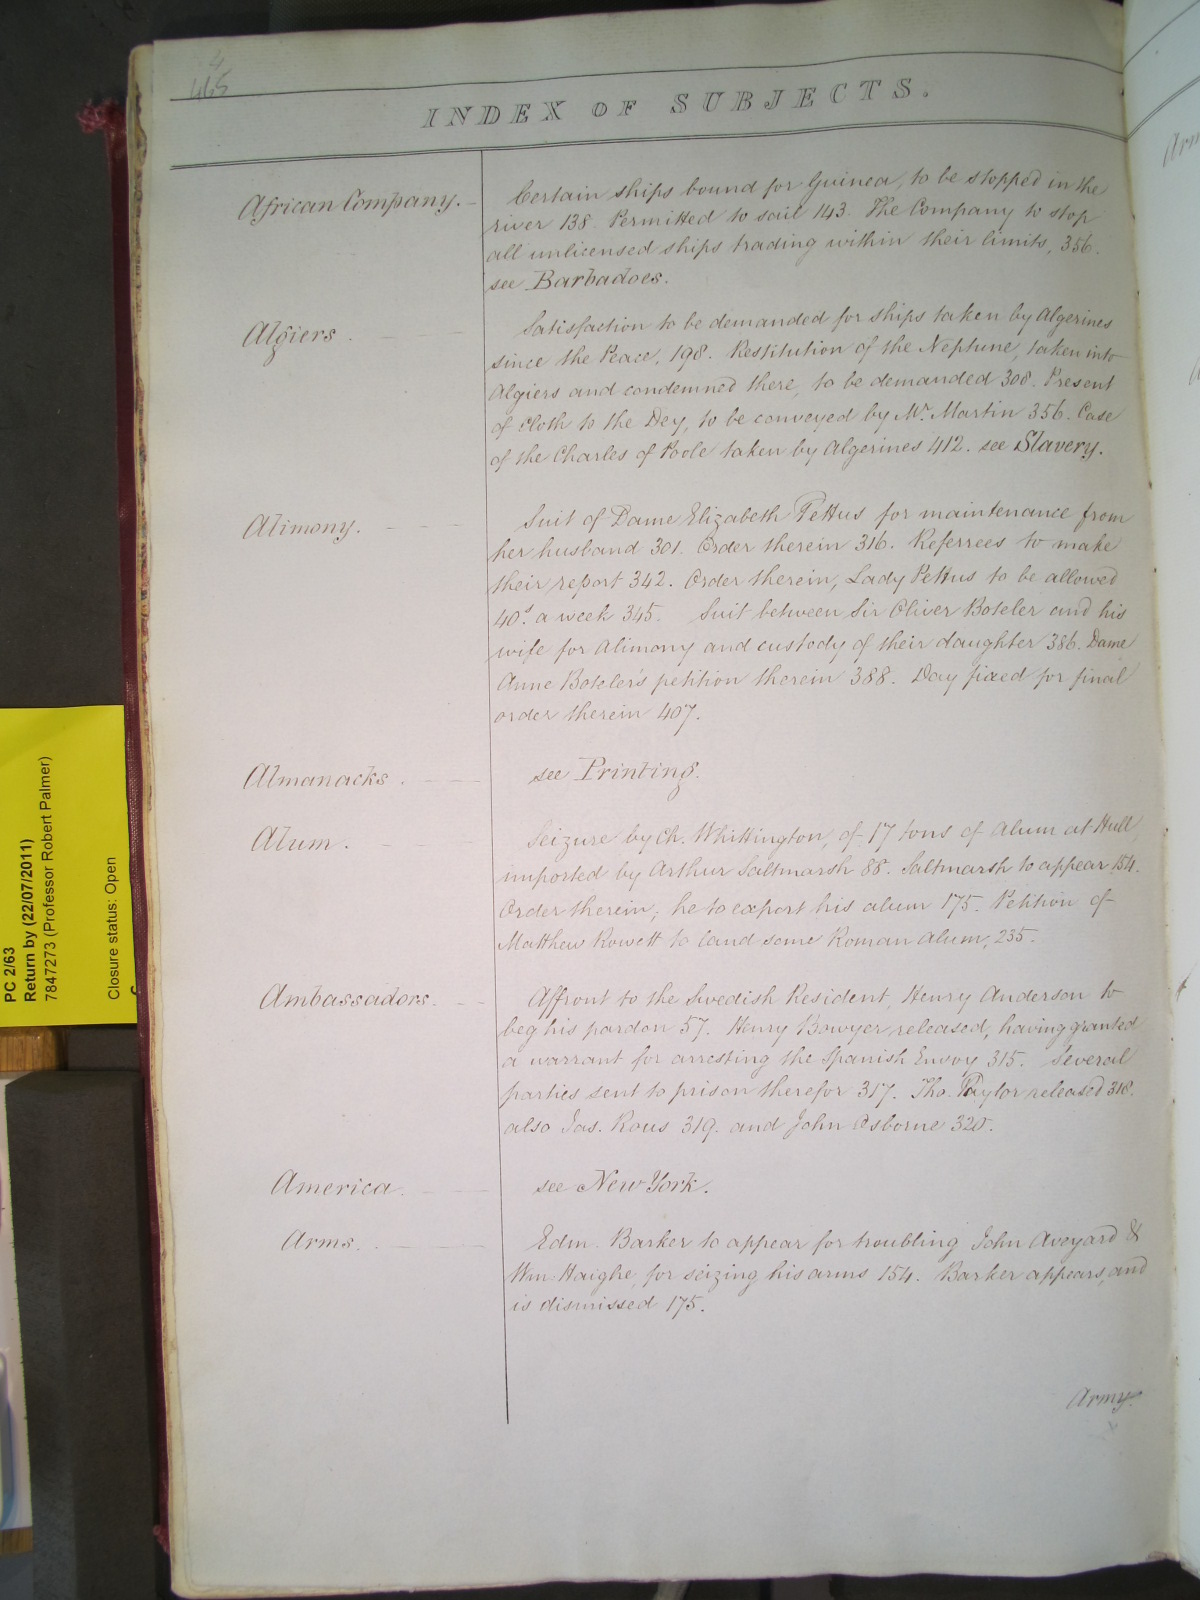 4
465
INDEX OF SUBJECTS.
African Company. - Certain ships bound for Guinea, to be stopped in the
river 138. Permitted to sail 143. The Company to stop
all unlicensed ships trading within their limits, 356.
see Barbadoes.
Algiers. Satisfaction to be demanded for ships taken by Algerines
since the Peace, 198. Restitution of the Neptune, taken into
Algiers and condemned there, to be demanded 308. Present
of cloth to the Dey, to be conveyed by Mr. Martin 356. Case
of the Charles of Poole taken by Algerines 412. see Slavery.
Alimony. Suit of Dame Elizabeth Pettus for maintenance from
her husband 301. Order therein 316. Referrees to make
their report 342. Order therein, Lady Pettus to be allowed
40s. a week 345. Suit between Sir Oliver Boteler and his
wife for Alimony and custody of their daughter 386. Dame
Anne Boteler's petition therein 388. Day fixed for final
order therein 407.
Almanacks. see Printing.
Alum. Seizure by Ch. Whittington, of 17 tons of Alum at Hull,
imported by Arthur Saltmarsh 88. Saltmarsh to appear 154.
Order therein, he to export his alum 175. Petition of
Matthew Rowett to land some Roman Alum, 235.
Ambassadors. Affront to the Swedish Resident, Henry Anderson to
beg his pardon 57. Henry Bowyer released, having granted
a warrant for arresting the Spanish Envoy 315. Several
parties sent to prison therefor 317. Tho. Taylor released 318.
also Jas. Rous 319. and John Osborne 320.
America. see New York.
Arms. Edm. Barker to appear for troubling John Aveyard &
Wm. Haighe, for seizing his arms 154. Barker appears, and
is dismissed 175.
Army.
PC 2/63
Return by (22/07/2011)
7847273 (Professor Robert Palmer)
Closure status: Open